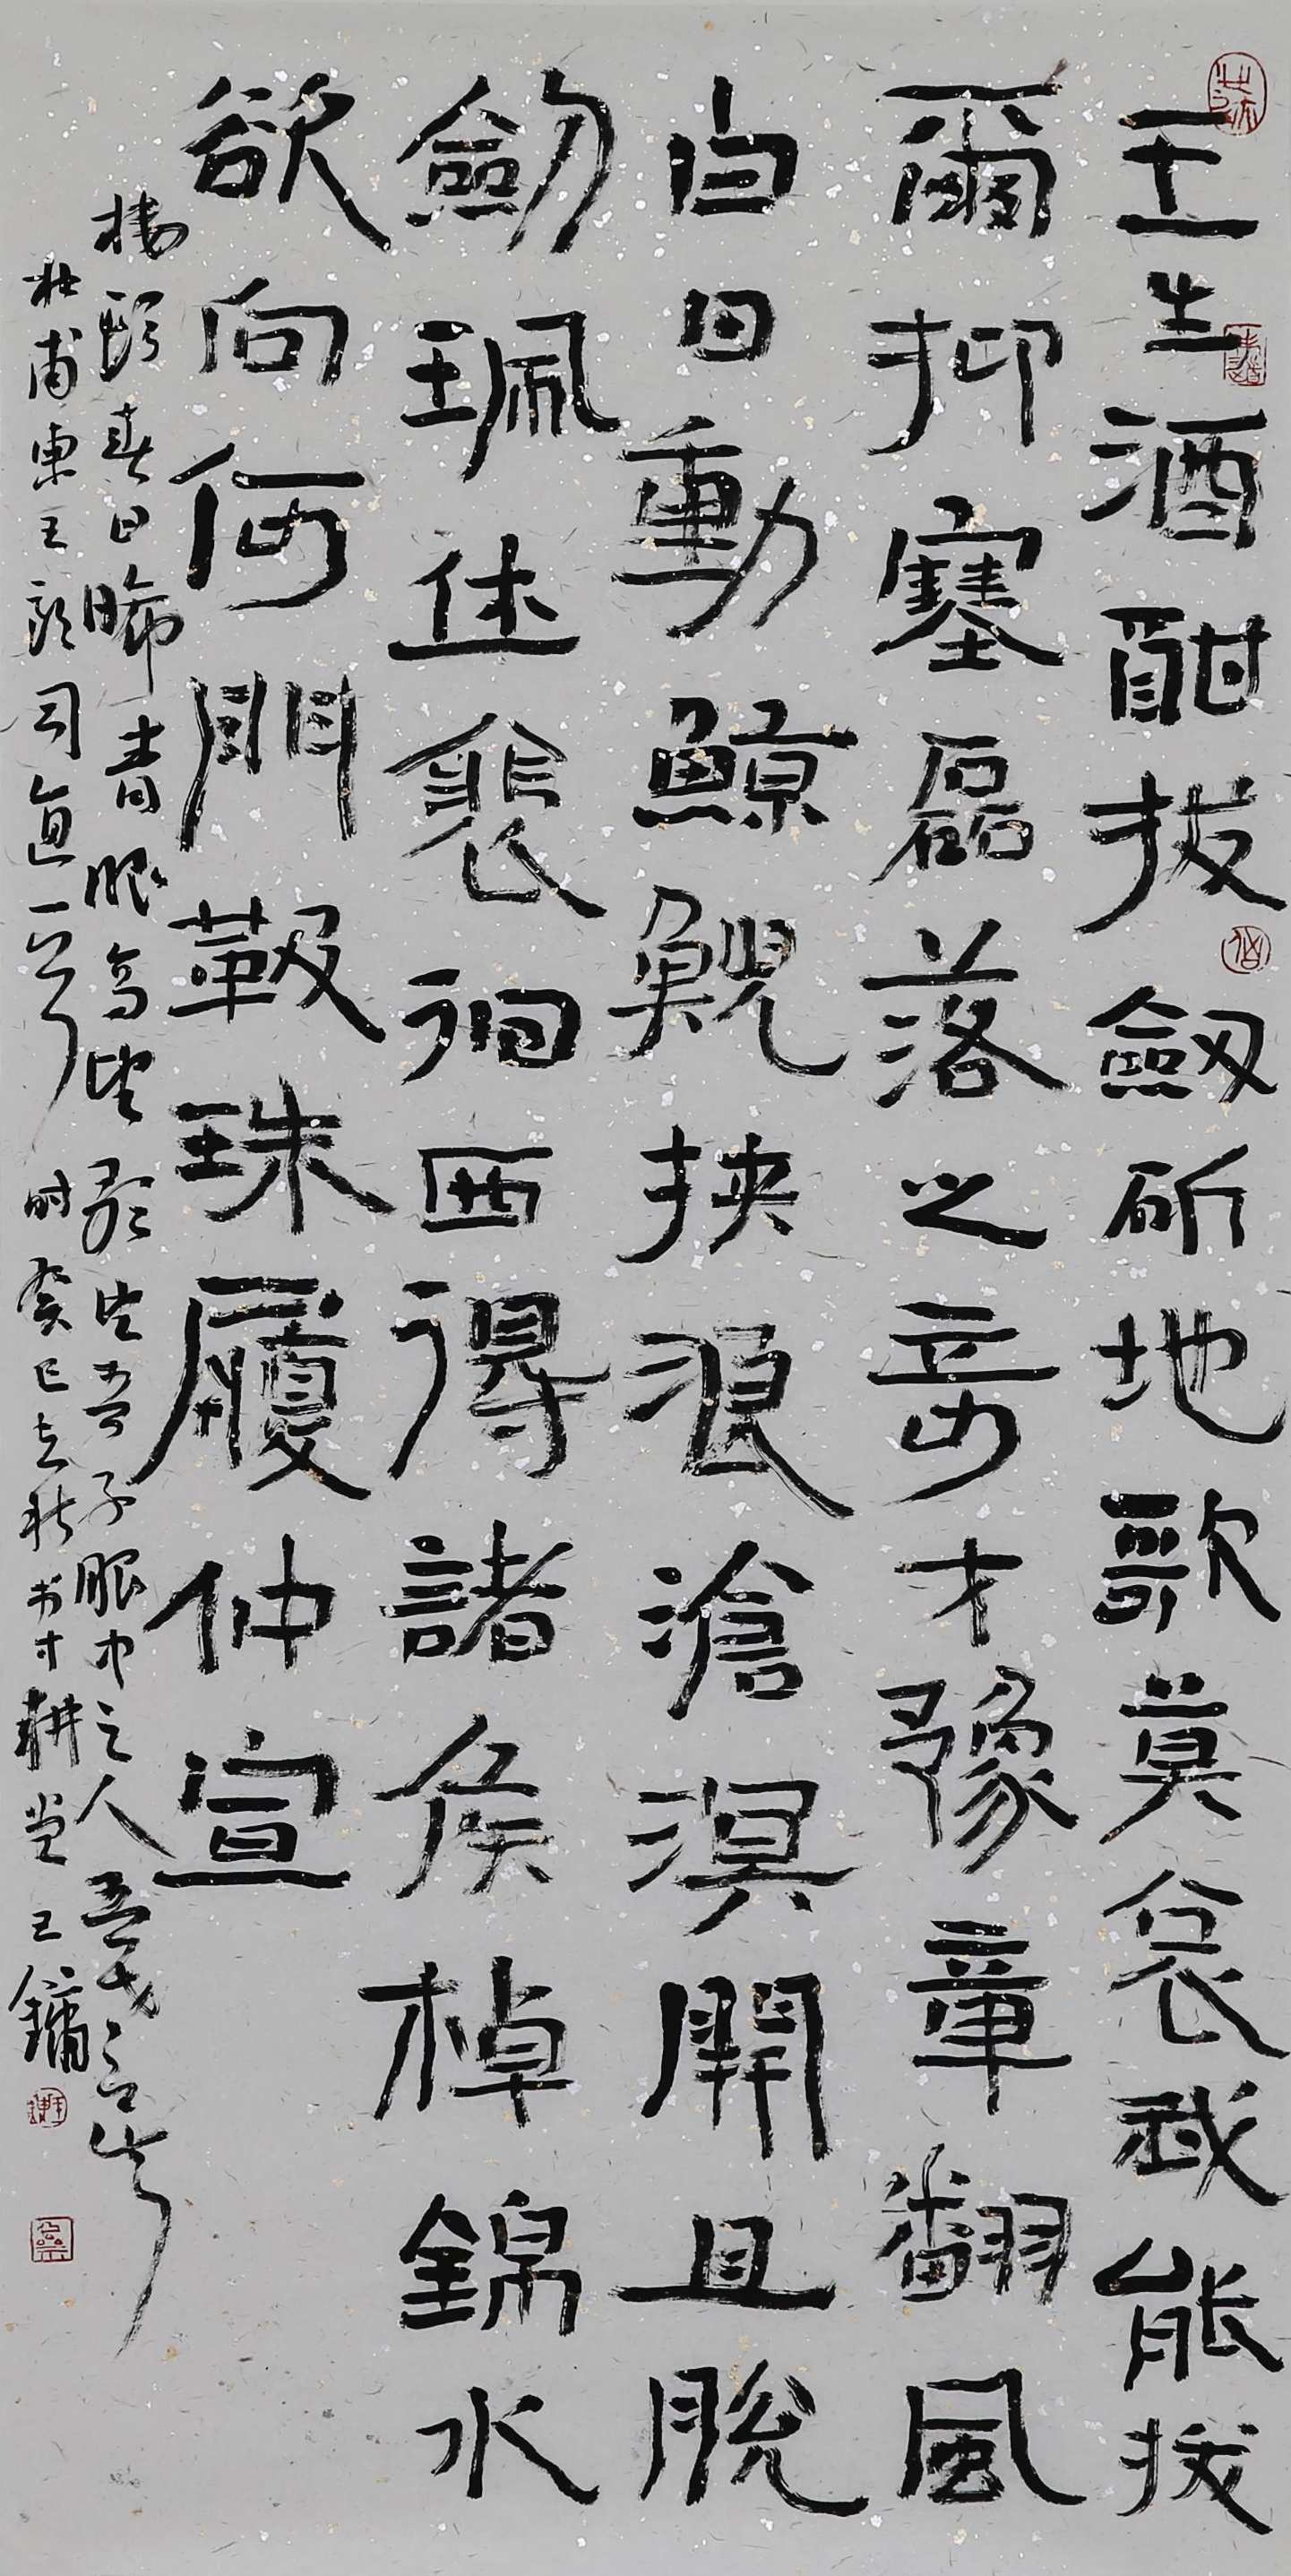 王生酒酣拔劔斫地歌莫哀我能拔
爾抑塞磊落之奇才豫章翻風
白日動鯨鯢掖浪滄溟開且脫
劔珮休裴徊西得諸侯棹錦水
欲向何門靸珠履仲宣
樓頭春日晞青眼高望吾子眼中之人吾老矣
杜甫東王郎司直一首 時癸巳之秋書於耕堂 王鏞